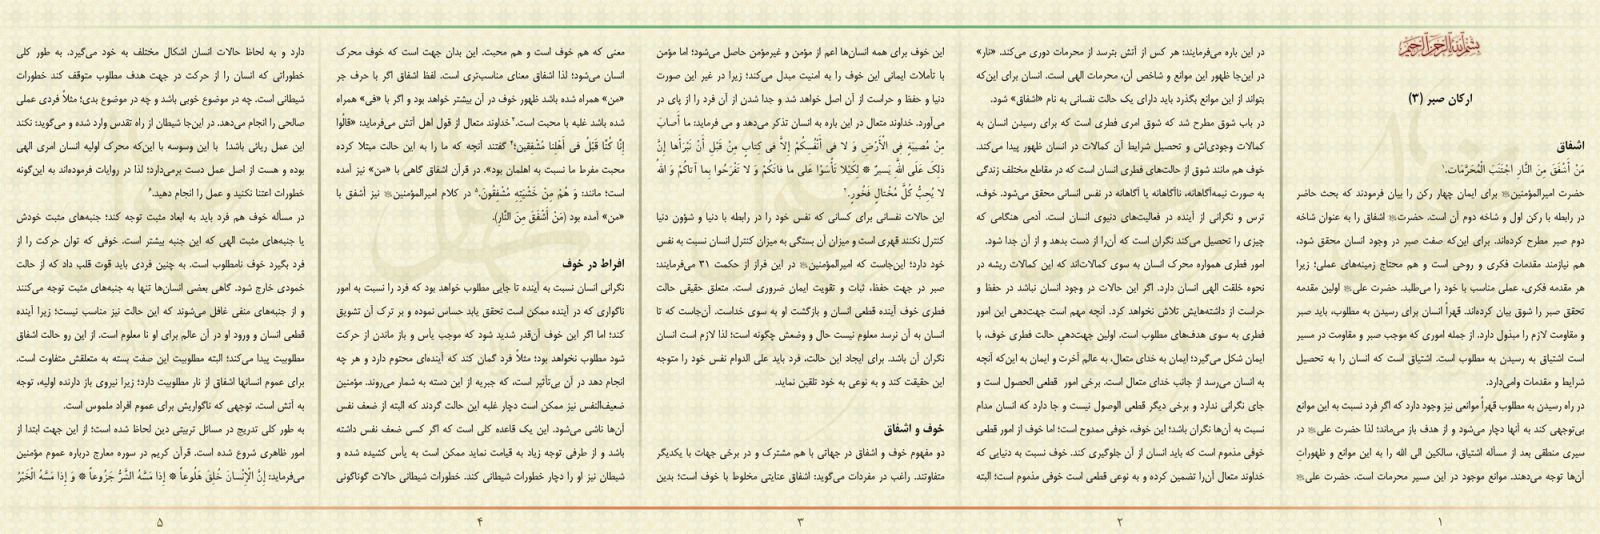 بسم الله الرحمن الرحیم
ارکان صبر (۳)
اشفاق
مَنْ أَشْفَقَ مِنَ النَّارِ اجْتَنَبَ الْمُحَرَّمَاتِ.۱
حضرت امیرالمؤمنین برای ایمان چهار رکن را بیان فرمودند که بحث حاضر
در رابطه با رکن اول و شاخه دوم آن است. حضرت اشفاق را به عنوان شاخه
دوم صبر مطرح کرده‌اند. برای این‌که صفت صبر در وجود انسان محقق شود،
هم نیازمند مقدمات فکری و روحی است و هم محتاج زمینه‌های عملی؛ زیرا
هر مقدمه فکری، عملی مناسب با خود را می‌طلبد. حضرت علی اولین مقدمه
تحقق صبر را شوق بیان کرده‌اند. قهراً انسان برای رسیدن به مطلوب، باید صبر
و مقاومت لازم را مبذول دارد. از جمله اموری که موجب صبر و مقاومت در مسیر
است اشتیاق به رسیدن به مطلوب است. اشتیاق است که انسان را به تحصیل
شرایط و مقدمات وامی‌دارد.
در راه رسیدن به مطلوب قهراً موانعی نیز وجود دارد که اگر فرد نسبت به این موانع
بی‌توجهی کند به آنها دچار می‌شود و از هدف باز می‌ماند؛ لذا حضرت علی در
سیری منطقی بعد از مسأله اشتیاق، سالکین الی الله را به این موانع و ظهورات
آن‌ها توجه می‌دهند. موانع موجود در این مسیر محرمات است. حضرت علی
۱
در این باره می‌فرمایند: هر کس از آتش بترسد از محرمات دوری می‌کند. «نار»
در این‌جا ظهور این موانع و شاخص آن، محرمات الهی است. انسان برای این‌که
بتواند از این موانع بگذرد باید دارای یک حالت نفسانی به نام «اشفاق» شود.
در باب شوق مطرح شد که شوق امری فطری است که برای رسیدن انسان به
کمالات وجودی‌اش و تحصیل شرایط آن کمالات در انسان ظهور پیدا می‌کند.
خوف هم مانند شوق از حالت‌های فطری انسان است که در مقاطع مختلف زندگی
به صورت نیمه‌آگاهانه، ناآگاهانه یا آگاهانه در نفس انسانی محقق می‌شود. خوف،
ترس و نگرانی از آینده در فعالیت‌های دنیوی انسان است. آدمی هنگامی که
چیزی را تحصیل می‌کند نگران است که آن‌را از دست بدهد و از آن جدا شود.
امور فطری همواره محرک انسان به سوی کمالات‌اند که این کمالات ریشه در
نحوه خلقت الهی انسان دارد. اگر این حالات در وجود انسان نباشد در حفظ و
حراست از داشته‌هایش تلاش نخواهد کرد. آنچه مهم است جهت‌دهی این امور
فطری به سوی هدف‌های مطلوب است. اولین جهت‌دهیِ حالت فطری خوف، با
ایمان شکل می‌گیرد؛ ایمان به خدای متعال، به عالم آخرت و ایمان به این‌که آنچه
به انسان می‌رسد از جانب خدای متعال است. برخی امور قطعی الحصول است و
جای نگرانی ندارد و برخی دیگر قطعی الوصول نیست و جا دارد که انسان مدام
نسبت به آن‌ها نگران باشد؛ این خوف، خوفی ممدوح است؛ اما خوف از امور قطعی
خوفی مذموم است که باید انسان از آن جلوگیری کند. خوف نسبت به دنیایی که
خداوند متعال آن‌را تضمین کرده و به نوعی قطعی است خوفی مذموم است؛ البته
۲
این خوف برای همه انسان‌ها اعم از مؤمن و غیرمؤمن حاصل می‌شود؛ اما مؤمن
با تأملات ایمانی این خوف را به امنیت مبدل می‌کند؛ زیرا در غیر این صورت
دنیا و حفظ و حراست از آن اصل خواهد شد و جدا شدن از آن فرد را از پای در
می‌آورد. خداوند متعال در این باره به انسان تذکر می‌دهد و می فرماید: ما أَصابَ
مِنْ مُصیبَةٍ فِی الْأَرْضِ وَ لا فی أَنْفُسِکُمْ إِلاَّ فی کِتابٍ مِنْ قَبْلِ أَنْ نَبْرَأَها إِنَّ
ذلِکَ عَلَى اللَّهِ یَسیرٌ * لِکَیْلا تَأْسَوْا عَلى ما فاتَکُمْ وَ لا تَفْرَحُوا بِما آتاکُمْ وَ اللَّهُ
لا یُحِبُّ کُلَّ مُخْتالٍ فَخُورٍ.۲
این حالات نفسانی برای کسانی که نفس خود را در رابطه با دنیا و شؤون دنیا
کنترل نکنند قهری است و میزان آن بستگی به میزان کنترل انسان نسبت به نفس
خود دارد؛ این‌جاست که امیرالمؤمنین در این فراز از حکمت ۳۱ می‌فرمایند:
صبر در جهت حفظ، ثبات و تقویت ایمان ضروری است. متعلق حقیقی حالت
فطری خوف آینده قطعی انسان و بازگشت او به سوی خداست. آن‌جاست که تا
انسان به آن نرسد معلوم نیست حال و وضعش چگونه است؛ لذا لازم است انسان
نگران آن باشد. برای ایجاد این حالت، فرد باید علی الدوام نفس خود را متوجه
این حقیقت کند و به نوعی به خود تلقین نماید.
خوف و اشفاق
دو مفهوم خوف و اشفاق در جهاتی با هم مشترک و در برخی جهات با یکدیگر
متفاوتند. راغب در مفردات می‌گوید: اشفاق عنایتی مخلوط با خوف است؛ بدین
۳
معنی که هم خوف است و هم محبت. این بدان جهت است که خوف محرک
انسان می‌شود؛ لذا اشفاق معنای مناسب‌تری است. لفظ اشفاق اگر با حرف جر
«من» همراه شده باشد ظهور خوف در آن بیشتر خواهد بود و اگر با «فی» همراه
شده باشد غلبه با محبت است.۳خداوند متعال از قول اهل آتش می‌فرماید: «قالُوا
إِنَّا کُنَّا قَبْلُ فی أَهْلِنا مُشْفِقینَ؛۴ گفتند آنچه که ما را به این حالت مبتلا کرده
محبت مفرط ما نسبت به اهلمان بود». در قرآن اشفاق گاهی با «من» نیز آمده
است؛ مانند: وَ هُمْ مِنْ خَشْیَتِهِ مُشْفِقُونَ.۵ در کلام امیرالمؤمنین نیز اشفق با
«من» آمده بود (مَنْ أَشْفَقَ مِنَ النَّارِ).
افراط در خوف
نگرانی انسان نسبت به آینده تا جایی مطلوب خواهد بود که فرد را نسبت به امور
ناگواری که در آینده ممکن است تحقق یابد حساس نموده و بر ترک آن تشویق
کند؛ اما اگر این خوف آن‌قدر شدید شود که موجب یأس و باز ماندن از حرکت
شود مطلوب نخواهد بود؛ مثلاً فرد گمان کند که آینده‌ای محتوم دارد و هر چه
انجام دهد در آن بی‌تأثیر است، که جبریه از این دسته به شمار می‌روند. مؤمنین
ضعیف‌النفس نیز ممکن است دچار غلبه این حالت گردند که البته از ضعف نفس
آن‌ها ناشی می‌شود. این یک قاعده کلی است که اگر کسی ضعف نفس داشته
باشد و از طرفی توجه زیاد به قیامت نماید ممکن است به یأس کشیده شده و
شیطان نیز او را دچار خطورات شیطانی کند. خطورات شیطانی حالات گوناگونی
۴
دارد و به لحاظ حالات انسان اشکال مختلف به خود می‌گیرد. به طور کلی
خطوراتی که انسان را از حرکت در جهت هدف مطلوب متوقف کند خطورات
شیطانی است. چه در موضوع خوبی باشد و چه در موضوع بدی؛ مثلاً فردی عملی
صالحی را انجام می‌دهد. در این‌جا شیطان از راه تقدس وارد شده و می‌گوید: نکند
این عمل ریائی باشد! با این وسوسه با این‌که محرک اولیه انسان امری الهی
بوده و هست از اصل عمل دست برمی‌دارد؛ لذا در روایات فرموده‌اند به این‌گونه
خطورات اعتنا نکنید و عمل را انجام دهید.۶
در مسأله خوف هم فرد باید به ابعاد مثبت توجه کند؛ جنبه‌های مثبت خودش
یا جنبه‌های مثبت الهی که این جنبه بیشتر است. خوفی که توان حرکت را از
فرد بگیرد خوف نامطلوب است. به چنین فردی باید قوت قلب داد که از حالت
خمودی خارج شود. گاهی بعضی انسان‌ها تنها به جنبه‌های مثبت توجه می‌کنند
و از جنبه‌های منفی غافل می‌شوند که این حالت نیز مناسب نیست؛ زیرا آینده
قطعی انسان و ورود او در آن عالم برای او نا معلوم است. از این رو حالت اشفاق
مطلوبیت پیدا می‌کند؛ البته مطلوبیت این صفت بسته به متعلقش متفاوت است.
برای عموم انسانها اشفاق از نار مطلوبیت دارد؛ زیرا نیروی باز دارنده اولیه، توجه
به آتش است. توجهی که ناگواریش برای عموم افراد ملموس است.
به طور کلی تدریج در مسائل تربیتی دین لحاظ شده است؛ از این جهت ابتدا از
امور ظاهری شروع شده است. قرآن کریم در سوره معارج درباره عموم مؤمنین
می‌فرماید: إِنَّ الْإِنْسانَ خُلِقَ هَلُوعاً * إِذا مَسَّهُ الشَّرُّ جَزُوعاً * وَ إِذا مَسَّهُ الْخَیْرُ
۵